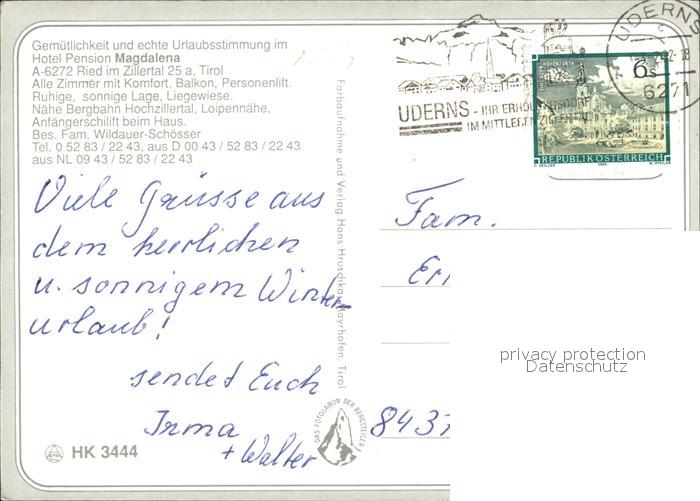 Gemütlichkeit und echte Urlaubsstimmung im
Hotel Pension Magdalena
A-6272 Ried im Zillertal 25 a, Tirol
Alle Zimmer mit Komfort, Balkon, Personenlift.
Ruhige, sonnige Lage, Liegewiese.
Nähe Bergbahn Hochzillertal, Loipennähe,
Anfängerschilift beim Haus.
Bes. Fam. Wildauer-Schösser
Tel. 0 52 83 / 22 43, aus D 00 43 / 52 83 / 22 43
aus NL 09 43 / 52 83 / 22 43
Viele Grüsse aus
dem herrlichen
u. sonnigem Winter-
urlaub!
sendet Euch
Irma
+ Walter
HK 3444
Farbaufnahme und Verlag Hans Hruschka, Mayrhofen, Tirol
DAS FOTOLABOR DER BERGSTEIGER
UDERNS - IHR ERHOLUNGSDORF
IM MITTLEREN ZILLERTAL
UDERNS
6271
6 S
REPUBLIK ÖSTERREICH
Fam.
Eri
8431
privacy protection
Datenschutz